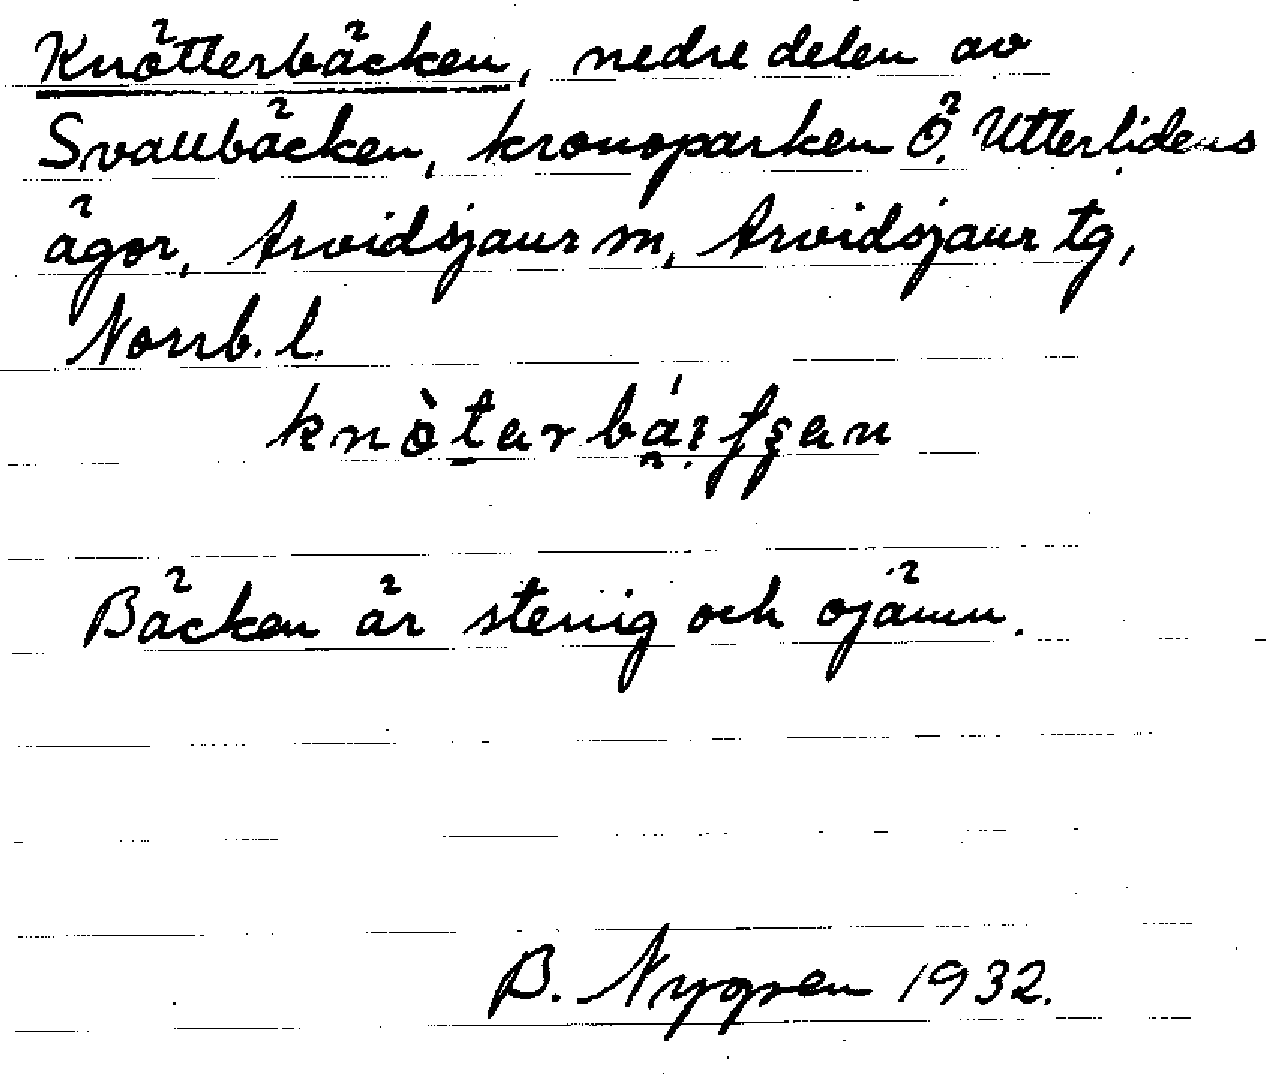 Knötterbäcken, nedre delen av
Svallbäcken, kronoparken Ö. Utterlidens
ägor, Arvidsjaur sn, Arvidsjaur tg,
Norrb. l.
Bäcken är stenig och ojämn.
B. Nygren 1932.